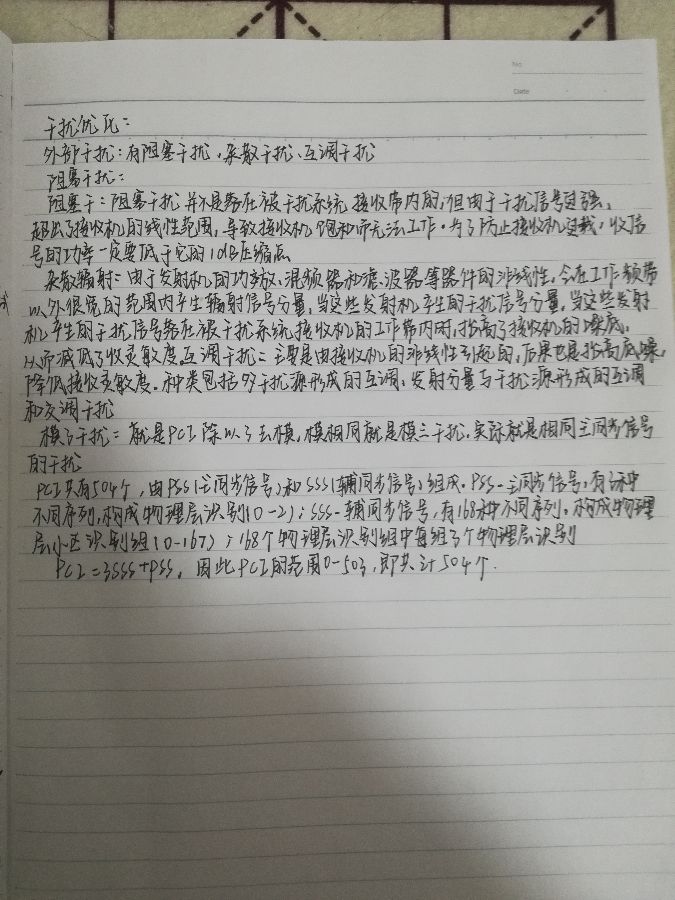 No
Date
干扰优化:
外部干扰:有阻塞干扰、杂散干扰、互调干扰
阻塞干扰:
阻塞干:阻塞干扰并不是落在被干扰系统接收带内的,但由于干扰信号过强,
超出了接收机的线性范围,导致接收机饱和而无法工作。为了防止接收机过载,收信
号的功率一定要低于它的1dB压缩点
杂散辐射:由于发射机的功放、混频器和滤波器等器件的非线性,会在工作频带
以外很宽的范围内产生辐射信号分量,当这些发射机产生的干扰信号分量,当这些发射
机产生的干扰信号落在被干扰系统接收机的工作带内时,抬高了接收机的噪底,
从而减低了收灵敏度互调干扰:主要是由接收机的非线性引起的,后果也是抬高底噪,
降低接收灵敏度。种类包括多干扰源形成的互调、发射分量与干扰源形成的互调
和交调干扰
模3干扰:就是PCI除以3去模,模相同就是模三干扰。实际就是相同主同步信号
的干扰
PCI共有504个,由PSS(主同步信号)和SSS(辅同步信号)组成。PSS-主同步信号,有3种
不同序列,构成物理层识别(0-2);SSS-辅同步信号,有168种不同序列。构成物理
层小区识别组(0-167);168个物理层识别组中每组3个物理层识别
PCI=3SSS+PSS,因此PCI的范围0-503,即共计504个.